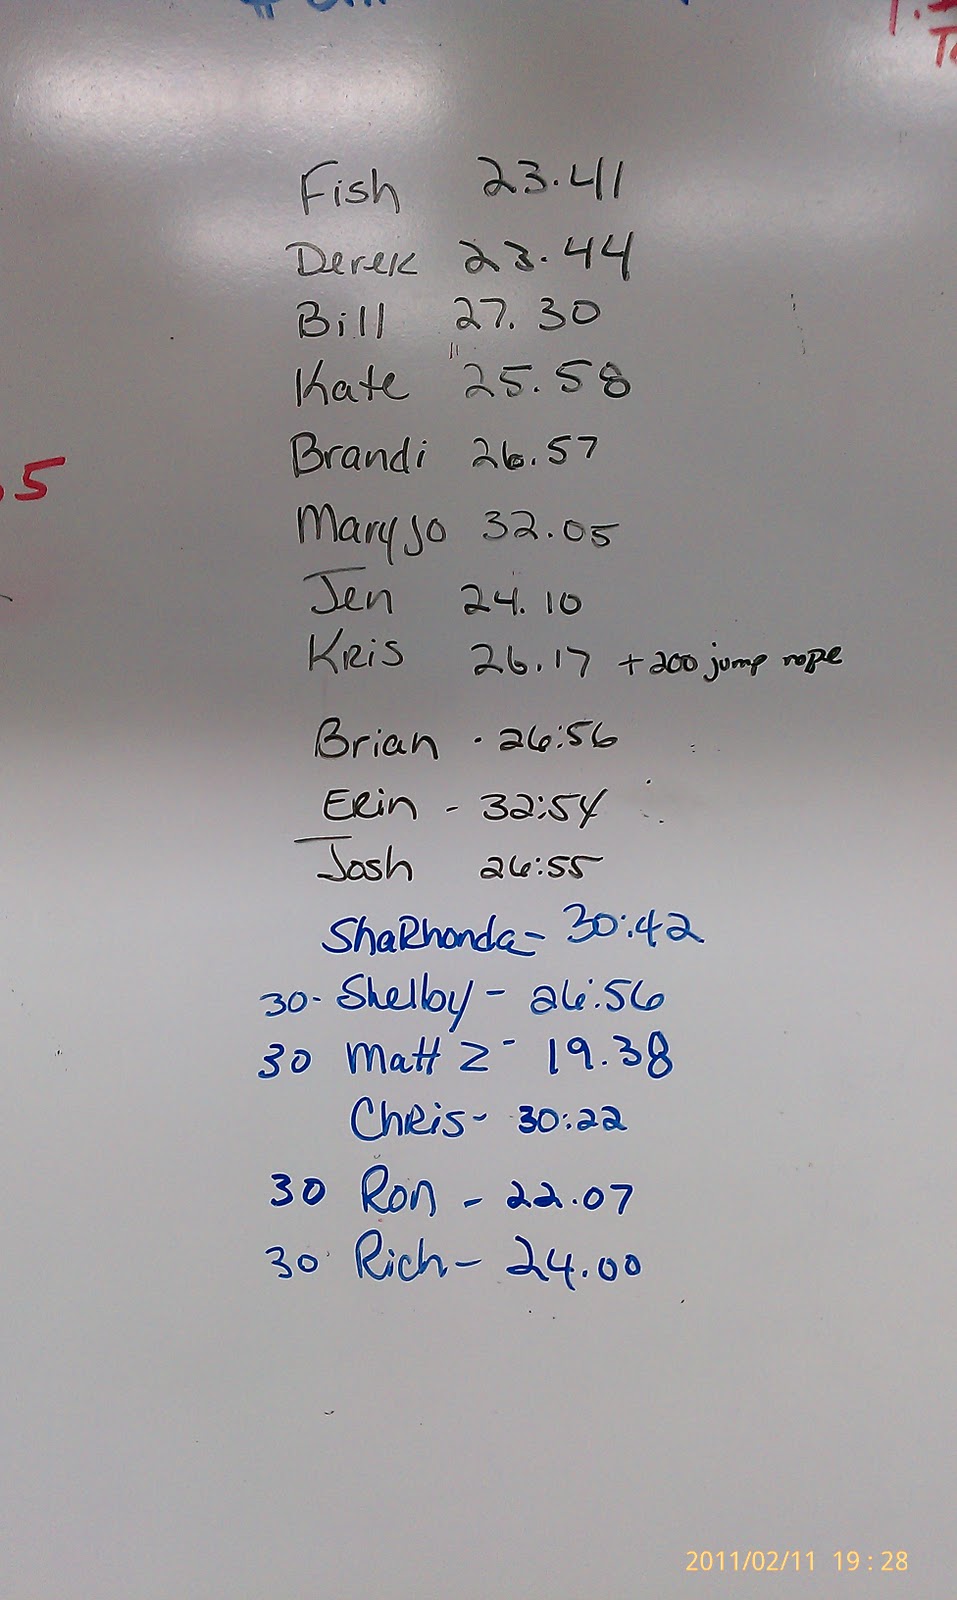 5
Fish 23.41
Derek 23.44
Bill 27.30
Kate 25.58
Brandi 26.57
Maryjo 32.05
Jen 24.10
Kris 26.17 +200 jump rope
Brian - 26:56
Erin - 32:54
Josh 26:55
ShaRhonda - 30:42
30 - Shelby - 26:56
30 Matt Z - 19.38
Chris - 30:22
30 Ron - 22.07
30 Rich - 24.00
2011/02/11 19:28